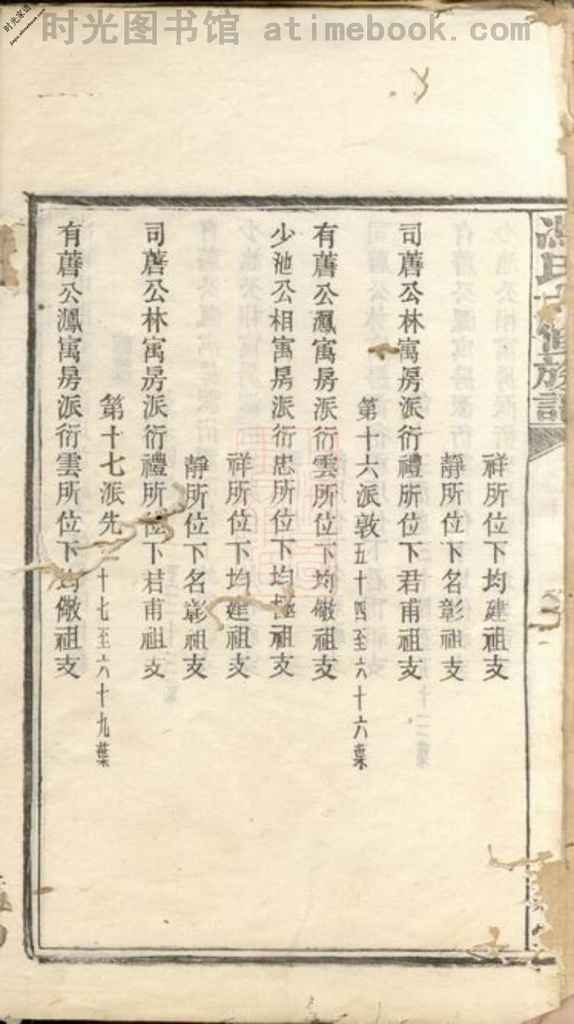 時光图书馆 atimebook.com
氏 修族譜
祥所位下均建祖支
靜所位下名彰祖支
司舊公林寓房派衍禮所位下君甫祖支
第十六派敦五十四至六十六葉
有舊公寓房派衍雲所位下均儆祖支
少池公相寓房派衍忠所位下均極祖支
祥所位下均建祖支
靜所位下名彰祖支
司舊公林寓房派衍禮所位下君甫祖支
第十七派先十七至六十九葉
有舊公寓房派衍雲所位下均儆祖支